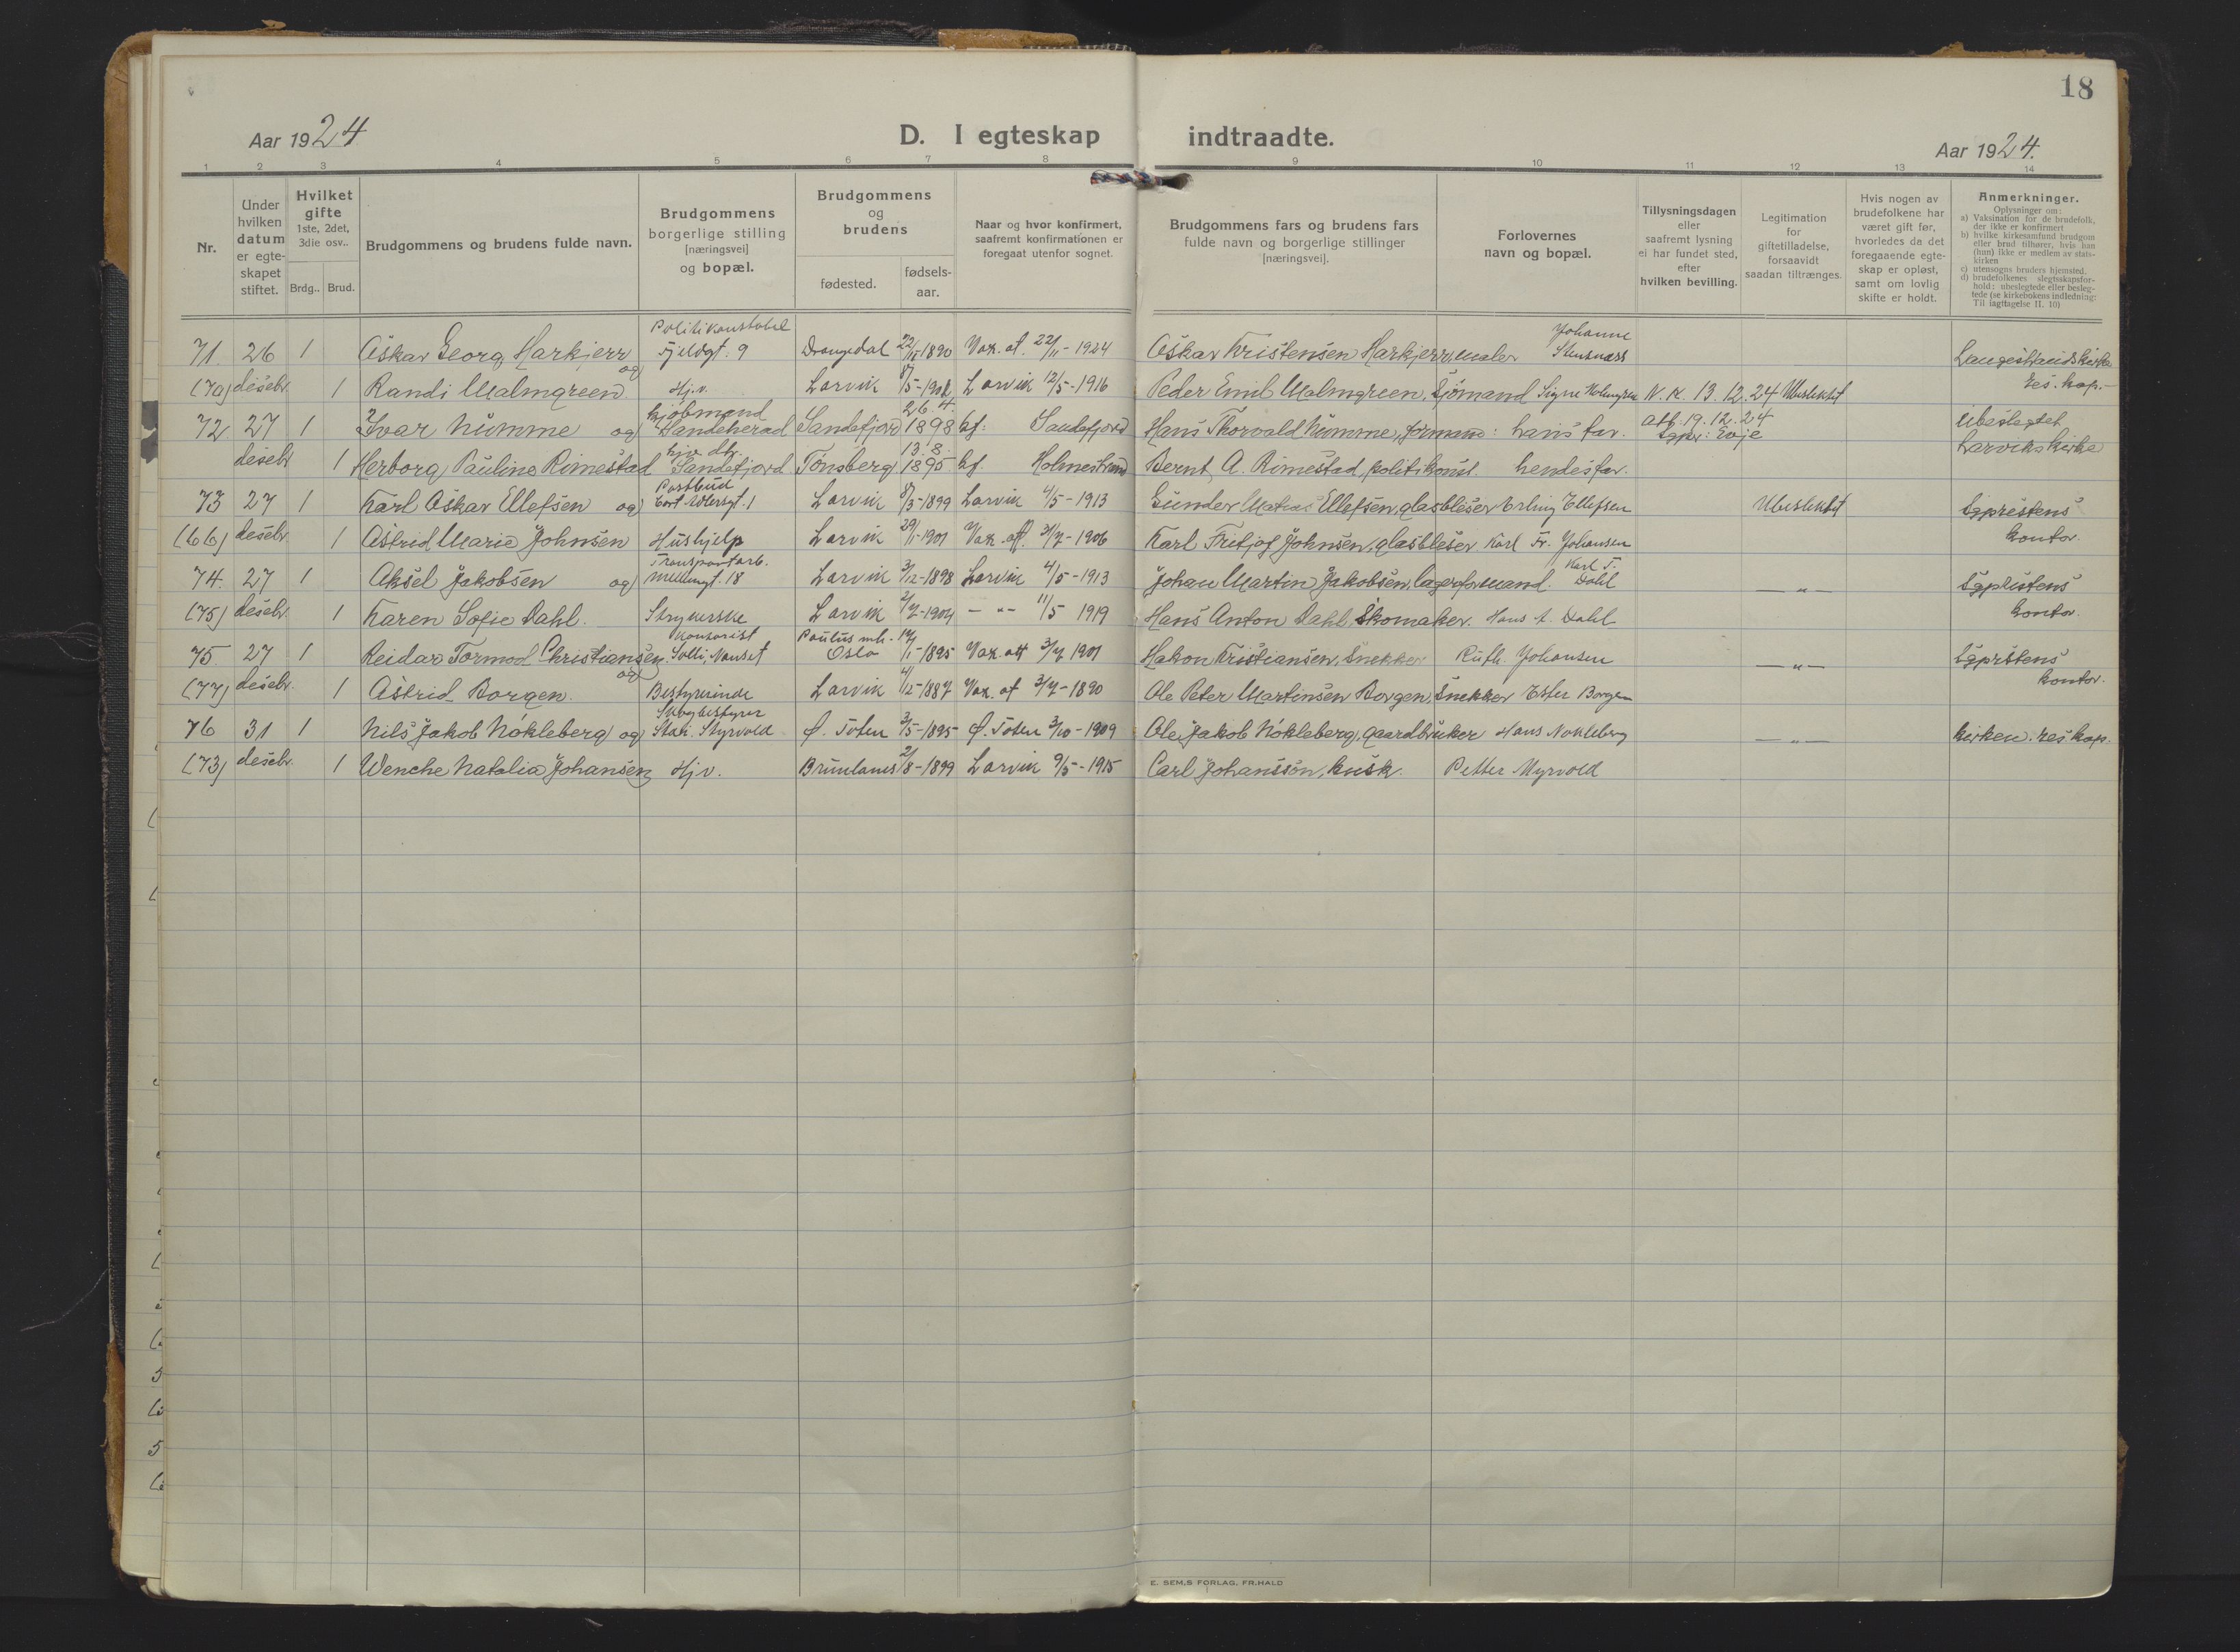 18
Aar 1924
D. I egteskap indtraadte.
Aar 1924.
1 2 3 4 5 6 7 8 9 10 11 12 13 14
Nr.
Under hvilken datum er egteskapet stiftet.
Hvilket gifte 1ste, 2det, 3die osv..
Brdg.. Brud.
Brudgommens og brudens fulde navn.
Brudgommens borgerlige stilling [næringsvei] og bopæl.
Brudgommens og brudens
fødested. fødselsaar.
Naar og hvor konfirmert, saafremt konfirmationen er foregaat utenfor sognet.
Brudgommens fars og brudens fars fulde navn og borgerlige stillinger [næringsvei].
Forlovernes navn og bopæl.
Tillysningsdagen eller saafremt lysning ei har fundet sted, efter hvilken bevilling.
Legitimation for giftetilladelse, forsaavidt saadan tiltrænges.
Hvis nogen av brudefolkene har været gift før, hvorledes da det foregaaende egteskap er opløst, samt om lovlig skifte er holdt.
Anmerkninger.
Oplysninger om:
a) Vaksination for de brudefolk, der ikke er konfirmert
b) hvilke kirkesamfund brudgom eller brud tilhører, hvis han (hun) ikke er medlem av statskirken
c) utensogns bruders hjemsted.
d) brudefolkenes slegtsskapsforhold: ubeslegtede eller beslegtede (se kirkebokens indledning: Til iagttagelse II. 10)
71. 26 1 Oskar Georg Harkjerr og Politikonstabel Fjeldgt. 9 Drangedal 1890 Vax. at. 22/11-1924 Oskar Kristensen Harkjerr, maler Johanne Langestrands kirke
(70) desebr. 1 Randi Malmgreen Hj.v. Larvik Larvik 12/5-1916 Peder Emil Malmgreen, Sjömand Signe 13.12.24 Ubeslektet res. kap.
72 27 1 Ivar Numme og kjöbmand Sandeherad Sandefjord 26.4. 1898 kf: Sandefjord Hans Thorvald Numme, formand: hans far. att. 19.12.24 Ubeslegtet
desebr 1 Herborg Pauline Rimestad Sandefjord Tönsberg 13.8. 1895 kf. Holmestrand Bernt A. Rimestad, politikonst. hendes far. Larviks kirke
73 27 1 Karl Oskar Ellefsen og Postbud Cort Adlersgt. 1 Larvik 8/5-1899 Larvik 4/5-1913 Gunder Matias Ellefsen, glasbleser Erling Ellefsen Ubeslektet Sgprestens
(66) desebr. 1 Astrid Marie Johnsen Hushjelp Larvik 29/1-1901 Vax. att. 31/7-1906 Karl Fritjof Johnsen, glasbleser Karl Fr. Johansen kontor.
74. 27 1 Aksel Jakobsen og Transportarb. Möllengt. 18 Larvik 3/12-1898 Larvik 4/5-1913 Johan Martin Jakobsen, lagerformand. Karl T. Dahl — „ — Sgprestens
(75) desebr. 1 Karen Sofie Dahl. Strykerske Larvik 2/7-1904 — „ — 11/5 1919 Hans Anton Dahl Skomaker. Hans A. Dahl kontor.
75. 27 1 Reidar Tormod Christiansen og Kontorist Solli, Nanset Paulus mh. Oslo 1895 Vax. att 3/7 1901 Hakon Kristiansen, Snekker Ruth Johansen — „ — Sgprstens
(77) desebr. 1 Astrid Borgen. Bestyrerinde Larvik 1887 Vax. at 3/7-1890 Ole Peter Martinsen Borgen, Snekker Ester Borgen kontor.
76 31 1 Nils Jakob Nökleberg og Skogbestyrer Ø. Toten 3/5-1895 Ø. Toten 3/10-1909 Ole Jakob Nökleberg, gaardbruker Hans Nökleberg — „ — kirken. res kap.
(73) desebr. 1 Wenche Natalia Johansen Hj.v. Brunlanes 2/8-1899 Larvik 9/5-1915 Carl Johansson, kusk. Petter Myrvold
E. SEM.S FORLAG, FR.HALD